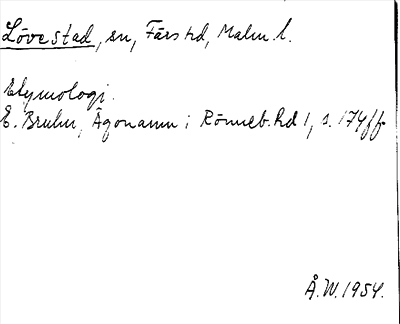 Lövestad, sn, Färs hd, Malm. l.
Etymologi.
E. Bruhn, Ägonamn i Rönneb. hd 1, s. 174 ff.
Å.W. 1954.